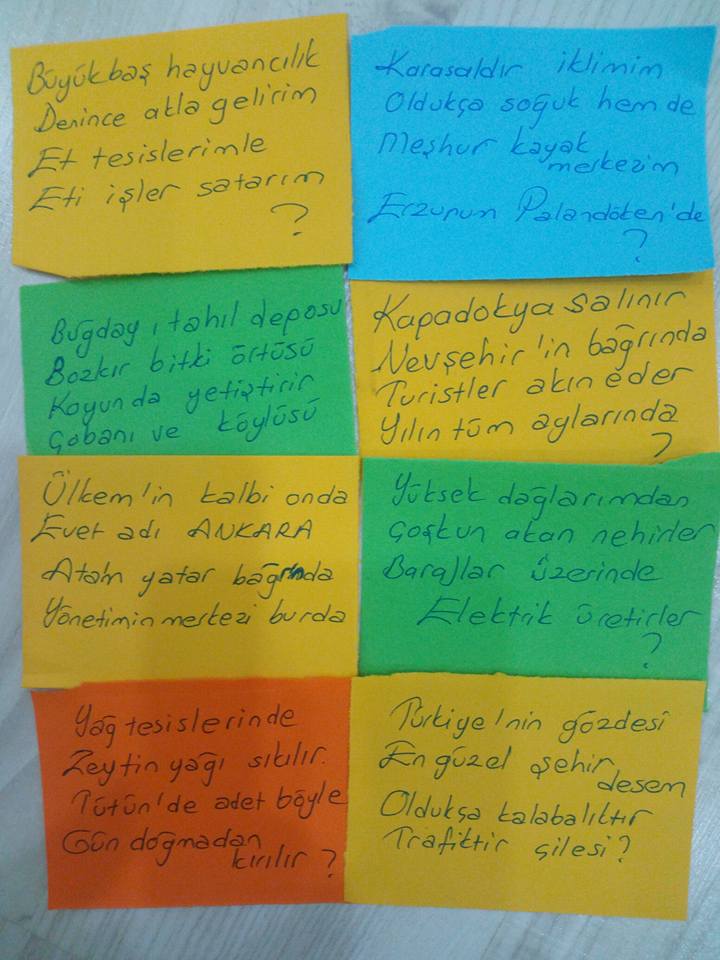 Büyükbaş hayvancılık
Denince akla gelirim
Et tesislerimle
Eti işler satarım
?
Karasaldır iklimim
Oldukça soğuk hem de
Meşhur kayak
merkezim
Erzurum Palandöken'de
?
Buğday, tahıl deposu
Bozkır bitki örtüsü
Koyunda yetiştirir
Çobanı ve köylüsü
Kapadokya salınır
Nevşehir'in bağrında
Turistler akın eder
Yılın tüm aylarında
?
Ülkem'in kalbi onda
Evet adı ANKARA
Atam yatar bağrında
Yönetimin merkezi burda
Yüksek dağlarımdan
Çoşkun akan nehirler
Barajlar üzerinde
Elektrik üretirler
?
Yağ tesislerinde
Zeytin yağı sıkılır.
Tütün'de adet böyle
Gün doğmadan
kırılır ?
Türkiye'nin gözdesi
En güzel şehir
desem
Oldukça kalabalıktır
Trafiktir çilesi?